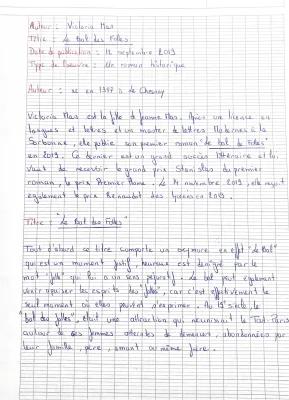 Auteur : Victoria Mas
Titre : Le Bal des Folles
Date de publication : 12 septembre 2019
Type de l'oeuvre : Un roman historique
Auteur : né en 1987 à le Chesnay
Victoria Mas est la fille de Jeanne Mas. Après un license en
langues et lettres et un master de lettres Modernes à la
Sorbonne, elle publie son premier roman "Le bal de Folles"
en 2019. Ce dernier est un grand succès littéraire et lui
vaut de recevoir le grand prix Stanislas du premier
roman, le prix Premier Plume. Le 14 novembre 2019, elle reçoit
également le prix Renaudot des lycéens 2019.
Titre : "Le Bal des Folles"
Tout d'abord se titre comporte un oxymore en effet "Le Bal"
qui est un moment festif, heureux est dénigré par le
mot "folle" qui lui a un sens péjoratif. Le bal peut également
venir apaiser les esprits des "folles", car c'est effectivement le
seul moment où elles peuvent s'exprimer. Au siècle, le
"bal des folles", était une attraction qui réunissait le Tout Paris
autour de ses femmes atteintes de démence, abandonnées par
leur famille, père, amant ou même frère.